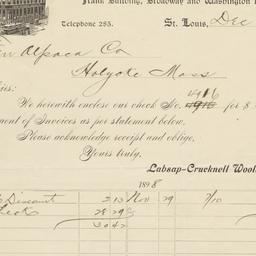 Frank Building, Broadway and Washington
Telephone 253. St. Louis, Dec
Alpaca Co
Holyoke Mass
4916
We herewith enclose our check No. 4918 for $
ment of Invoices as per statement below.
Please acknowledge receipt and oblige,
Yours truly,
Labsap-Crucknell Wool
1898
Discount 2 13 Nov 29 7/10
28 29
30 42